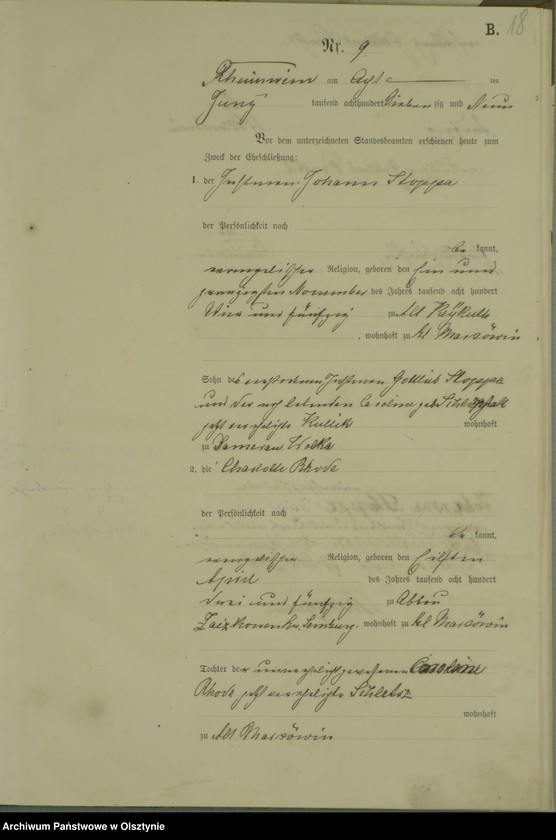 B. 18
Nr. 9
Rheinswein am Acht ten
Juny tausend achthundert Sieben zig und Neun
Vor dem unterzeichneten Standesbeamten erschienen heute zum
Zweck der Eheschließung:
1. der Instmann Johann Stoppa
der Persönlichkeit nach
be kannt,
evangelischer Religion, geboren den Ein und
zwanzigsten November des Jahres tausend acht hundert
Vier und fünfzig zu Alt
, wohnhaft zu Alt Marxöwen
Sohn des verstorbenen Instmann Gottlieb Stoppa
und der noch lebenden Carolina geb.
jetzt verehelichte Kullik wohnhaft
zu Damerau Wolka
2. die Charlotte Rhode
der Persönlichkeit nach
be kannt,
evangelischer Religion, geboren den Eilften
April des Jahres tausend acht hundert
drei und fünfzig zu Abbau
wohnhaft zu Alt Marxöwen
Tochter der unverehelicht gewesenen Caroline
Rhode jetzt verehelichte
wohnhaft
zu Alt Marxöwen
Archiwum Państwowe w Olsztynie